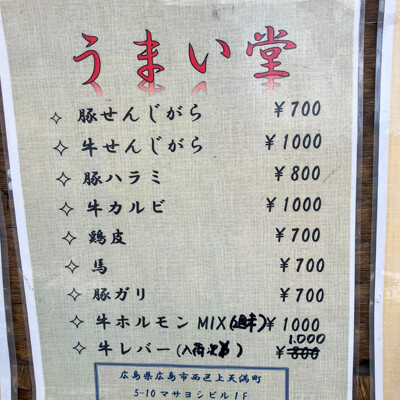 うまい堂
✧ 豚せんじがら ¥700
✧ 牛せんじがら ¥1000
✧ 豚ハラミ ¥800
✧ 牛カルビ ¥1000
✧ 鶏皮 ¥700
✧ 馬 ¥700
✧ 豚ガリ ¥700
✧ 牛ホルモンMIX(週末) ¥1000
1.000
✧ 牛レバー(入荷次第) ¥800
広島県広島市西区上天満町
5-10マサヨシビル1F